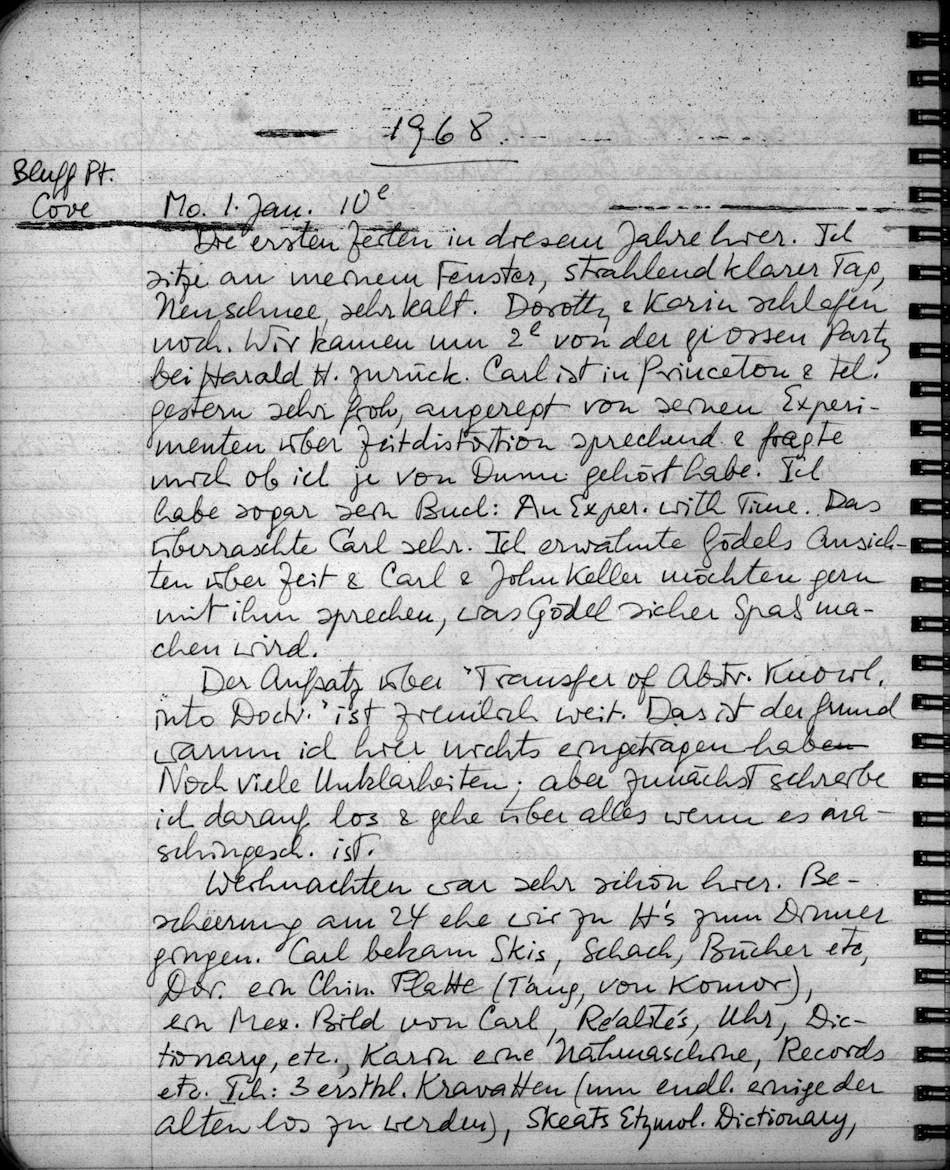 1968.
Bluff Pt.
Cove Mo. 1. Jan. 10e
Die ersten Zeilen in diesem Jahre hier. Ich
sitze an meinem Fenster, strahlend klarer Tag,
Neuschnee, sehr kalt. Dorothy & Karin schlafen
noch. Wir kamen um 2e von der grossen Party
bei Harald H. zurück. Carl ist in Princeton & tel.
gestern sehr froh, angeregt von seinen Experi-
menten über Zeitdistortion sprechend & fragte
mich ob ich je von Dunne gehört habe. Ich
habe sogar sein Buch: An Exper. with Time. Das
überraschte Carl sehr. Ich erwähnte Gödels Ansich-
ten über Zeit & Carl & John Keller möchten gern
mit ihm sprechen, was Gödel sicher Spaß ma-
chen wird.
Der Aufsatz über 'Transfer of Abstr. Knowl.
into Doctr.' ist ziemlich weit. Das ist der Grund
warum ich hier nichts eingetragen haben
Noch viele Unklarheiten; aber zunächst schreibe
ich darauf los & gehe über alles wenn es ma-
schingesch. ist.
Weihnachten war sehr schön hier. Be-
scheerung am 24 ehe wir zu H's zum Dinner
gingen. Carl bekam Skis, Schach, Bücher etc,
Dor. ein Chin. Platte (T'ang, von Komor),
ein Mex. Bild von Carl, Réalités, Uhr, Dic-
tionary, etc., Karin eine Nähmaschine, Records
etc. Ich: 3 erstkl. Kravatten (um endl. einige der
alten los zu werden), Skeats Etymol. Dictionary,